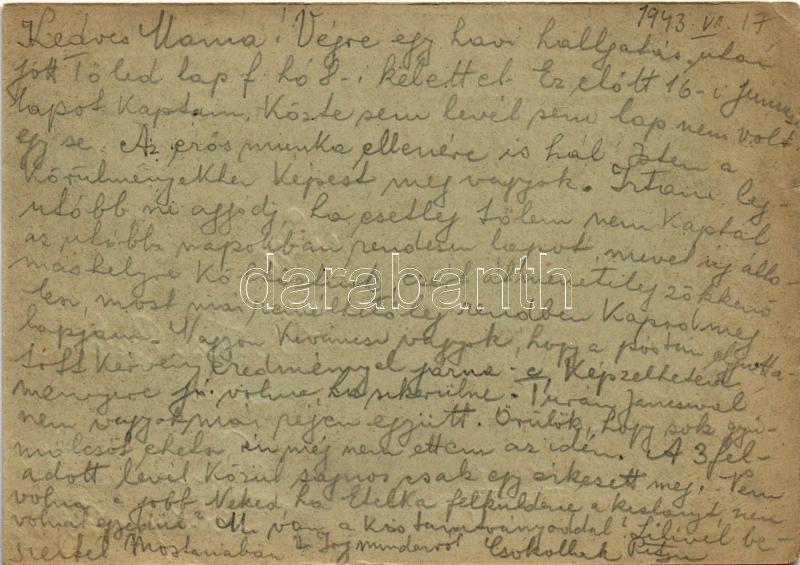 1943. VI. 17
Kedves Mama! Végre egy havi hallgatás után
jött Tőled lap f. hó 8-i kelettel. Ez előtt 16-i
lapot kaptam. Közte sem levél sem lap nem volt
egy se. Az erős munka ellenére is hál' Isten a
körülményekhez képest meg vagyok. Irtam leg-
utóbb ne aggódj ha esetleg tőlem nem kaptál
az utóbbi napokban rendesen lapot, mivel új állo-
máshelyre
most már rendben kapod meg
lapjaim. Nagyon kiváncsi vagyok, hogy a postán
kérvény eredménnyel járna-e. Képzelheted
mennyire jó volna, ha sikerülne. Turán Jancsival
nem vagyok már régen együtt. Örülök, hogy sok gyü-
mölcsöt ehetsz én még nem ettem az idén. A 3 fel-
adott levél közül sajnos csak egy érkezett meg. Nem
volna-e jobb Neked ha Etelka felküldené a kislányt, nem
volnál egyedül? Mi van a Lilivel be-
széltél mostanában? Irj mindenről! Csókollak
darabanth